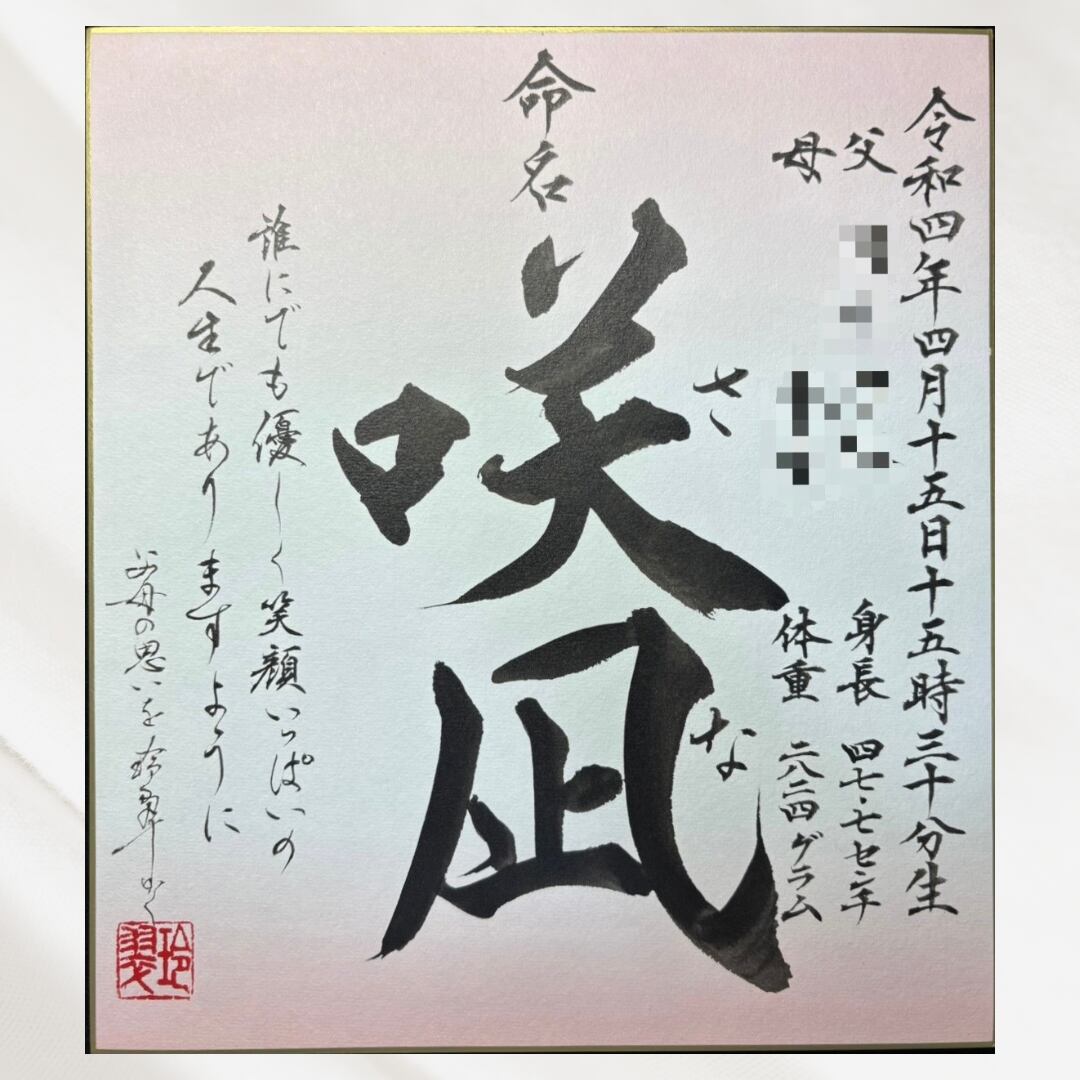 令和四年四月十五日十五時三十分生
父
母
身長 四七・七センチ
体重 二八二四グラム
命名
咲凪
さな
誰にでも優しく笑顔いっぱいの
人生でありますように
父母の思いを玲翠かく
玲翠